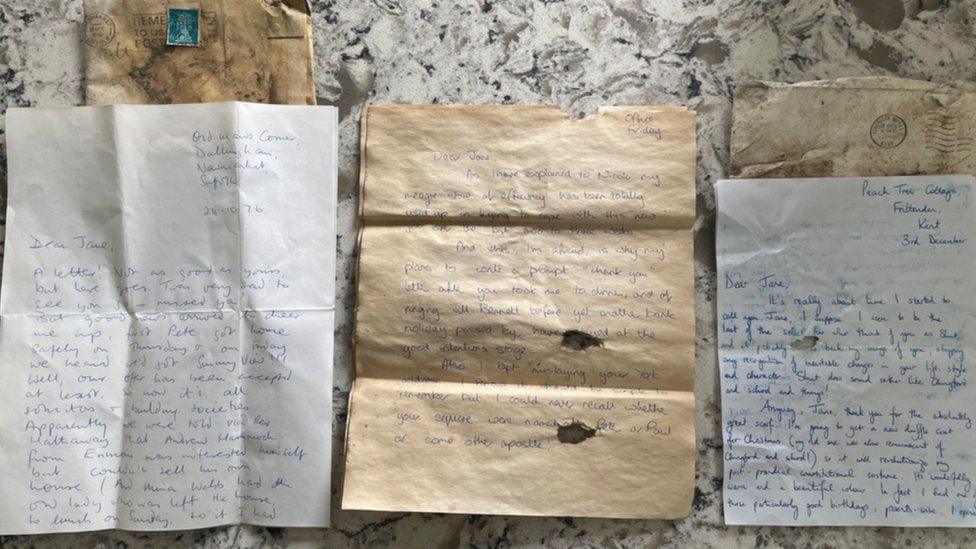 REME
TO US
POST
Old Maids Corner,
Dullingham,
Newmarket,
Suffolk
24.10.76
Dear Jane,
A letter! Not as good as yours,
but here goes. I was very sad to
see you go - missed ya
But good news arrived to cheer
me up, first Pete got home
safely on Thursday & on Friday
we heard we'd got Sunny View!!!
Well, our offer has been accepted
at least, so now it's all
solicitors & building societies.
Apparently we were told via Rex
Hathaway that Andrew
from was interested himself
but couldn't sell his own
house! (And Webb had the
old lady who was left the house,
to lunch on Sunday, so if I had
Office
Friday
Dear Jane,
As I have explained to Nicola my
meagre store of efficiency has been totally
used up in trying to cope with this new
job over the last two to three weeks.
And this, I'm afraid, is why my
plans to write a prompt "thank you"
letter after you took me to dinner, and of
ringing Jill Bennett before yet another bank
holiday passed by, have stayed at the
good intentions stage.
Also I kept mislaying your York
address. I it simple to
remember but I could never recall whether
your square were named Pete or Paul
or some other apostle!
Peach Tree Cottage
Frittenden,
Kent
3rd December
Dear Jane,
It's really about time I started to
call you Jane, I suppose. I seem to be the
last of the who think of you as Shut
and it's probably back by of you, stopping
any recognition of inevitable changes in your life, style
and character. Shut does sound rather like
and school and things!
Anyway, Jane, thank you for the absolutely
great scarf. I'm going to get a new duffle coat
for Christmas (my old one was also reminiscent of
and school!) so it will revolutionise my
post-prandial constitutional costume. It's wonderfully
warm and a beautiful colour. In fact I had
three particularly good birthday, presents-wise. I